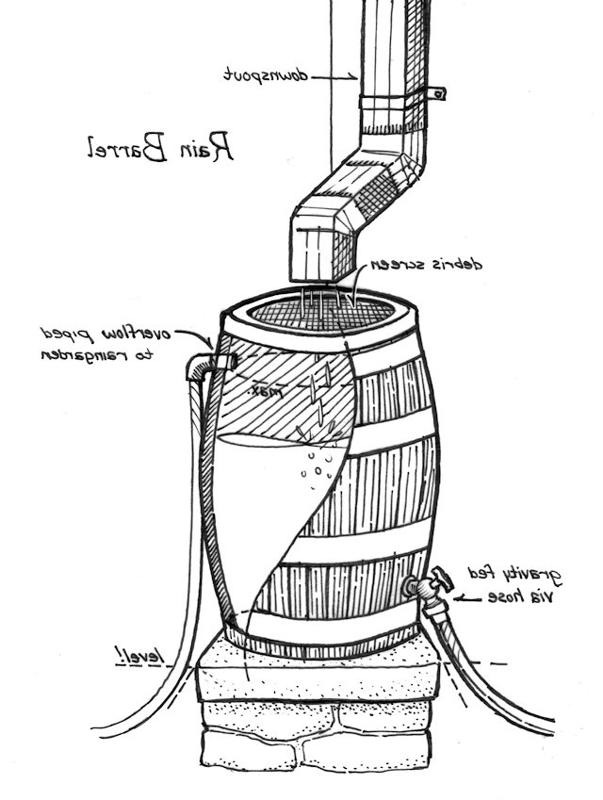 downspout
Rain Barrel
debris screen
overflow piped
to raingarden
max.
gravity fed
via hose
level!